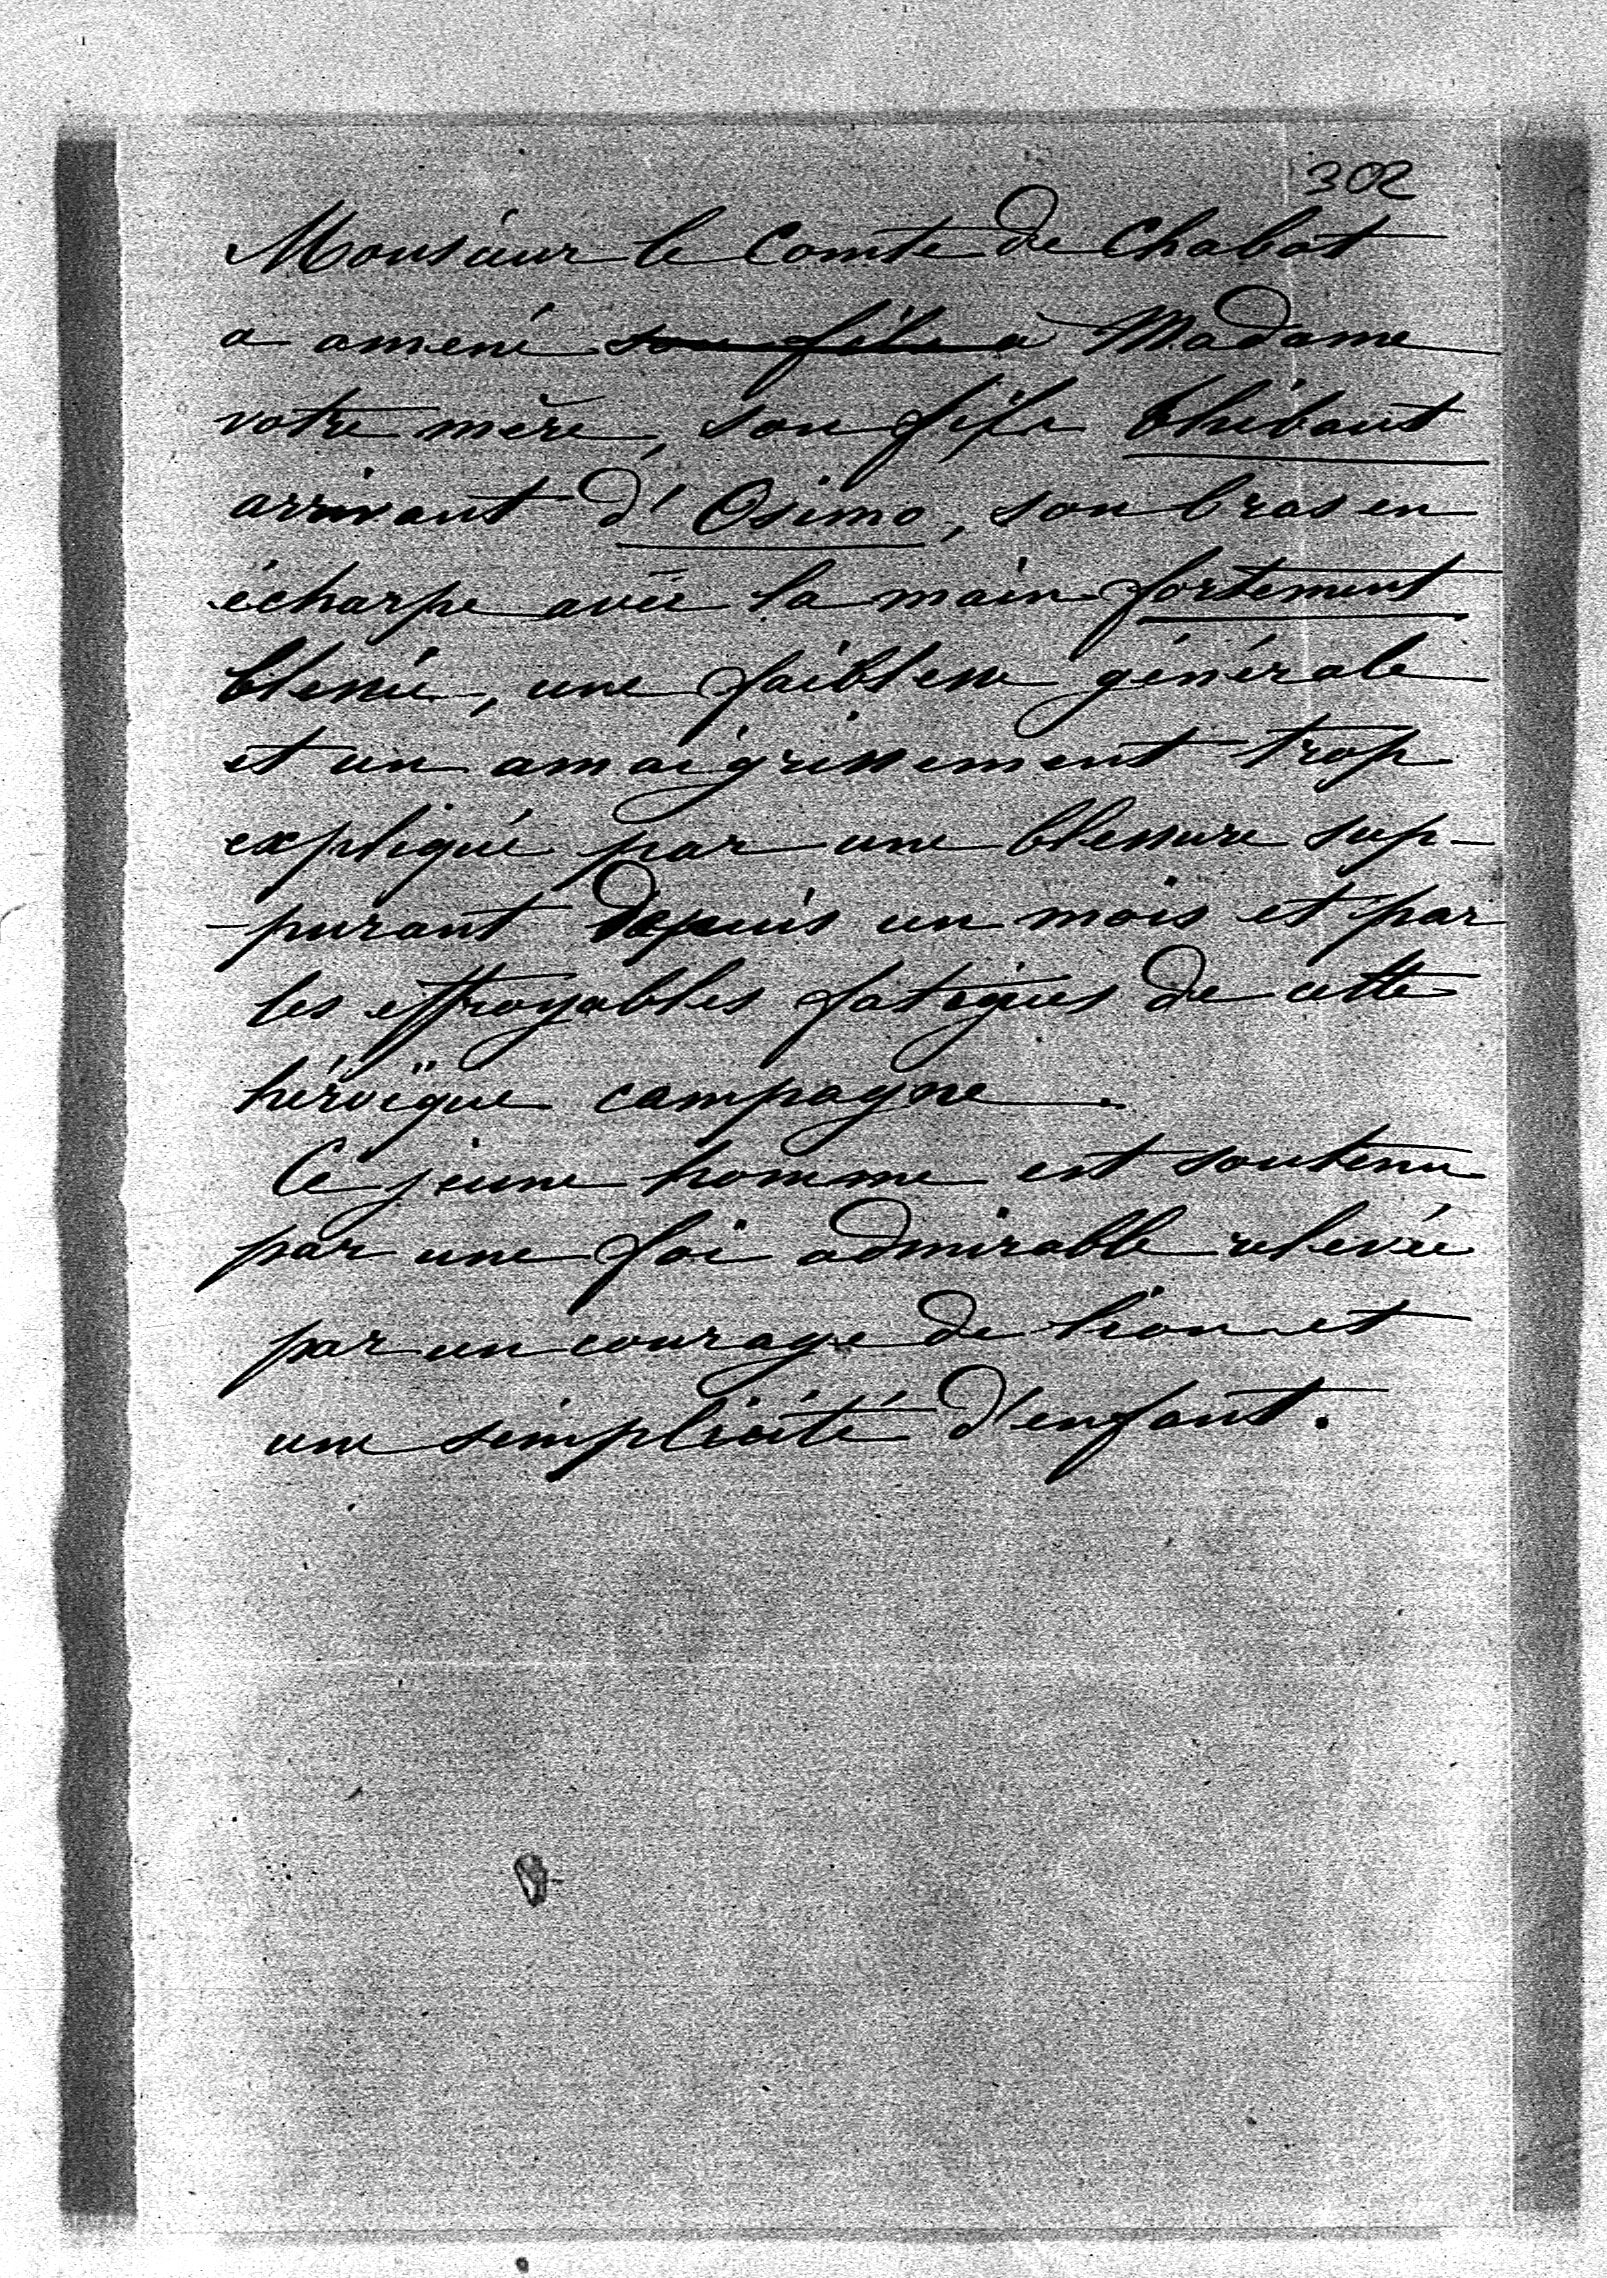 302
Monsieur le Comte de Chabot
a amené son fils à Madame
votre mère, son fils Thibaut
arrivant d'Osimo, son bras en
écharpe avec la main fortement
blessée, une faiblesse générale
et un amaigrissement trop
expliqué par une blessure sup-
-purant depuis un mois et par
les effroyables fatigues de cette
héroïque campagne.
Ce jeune homme est soutenu
par une foi admirable relevée
par un courage de lion et
une simplicité d'enfant.